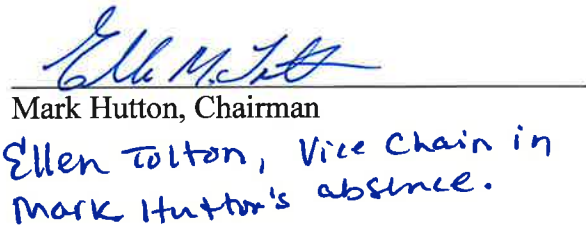 Ellen M. Tolton
Mark Hutton, Chairman
Ellen Tolton, Vice Chair in
Mark Hutton's absence.